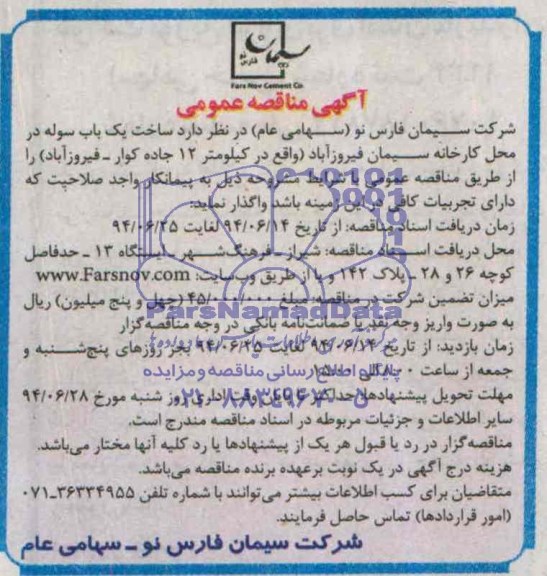 سیمان فارس نو
Fars Nov Cement Co.
آگهی مناقصه عمومی
شرکت سیمان فارس نو (سهامی عام) در نظر دارد ساخت یک باب سوله در
محل کارخانه سیمان فیروزآباد (واقع در کیلومتر ۱۲ جاده کوار ـ فیروزآباد) را
از طریق مناقصه عمومی با شرایط مشروحه ذیل به پیمانکار واجد صلاحیت که
دارای تجربیات کافی در این زمینه باشد واگذار نماید:
زمان دریافت اسناد مناقصه: از تاریخ ۹۴/۰۶/۱۴ لغایت ۹۴/۰۶/۲۵
محل دریافت اسناد مناقصه: شیراز ـ فرهنگ‌شهر ـ ایستگاه ۱۳ ـ حدفاصل
کوچه ۲۶ و ۲۸ ـ پلاک ۱۴۲ و یا از طریق وب‌سایت: www.Farsnov.com
میزان تضمین شرکت در مناقصه: مبلغ ۴۵/۰۰۰/۰۰۰ (چهل و پنج میلیون) ریال
ParsNamadData
به صورت واریز وجه نقد یا ضمانت‌نامه بانکی در وجه مناقصه‌گزار
زمان بازدید: از تاریخ ۹۴/۰۶/۱۴ لغایت ۹۴/۰۶/۲۵ بجز روزهای پنج‌شنبه و
جمعه از ساعت ۸:۰۰ الی ۱۵:۰۰
پایگاه اطلاع رسانی مناقصه و مزایده
مهلت تحویل پیشنهادها: حداکثر تا پایان وقت اداری روز شنبه مورخ ۹۴/۰۶/۲۸
۰۲۱-۸۸۳۴۹۶۷۰-۵
سایر اطلاعات و جزئیات مربوطه در اسناد مناقصه مندرج است.
مناقصه‌گزار در رد یا قبول هر یک از پیشنهادها یا رد کلیه آنها مختار می‌باشد.
هزینه درج آگهی در یک نوبت برعهده برنده مناقصه می‌باشد.
متقاضیان برای کسب اطلاعات بیشتر می‌توانند با شماره تلفن ۳۶۳۳۴۹۵۵-۰۷۱
(امور قراردادها) تماس حاصل فرمایند.
شرکت سیمان فارس نو ـ سهامی عام